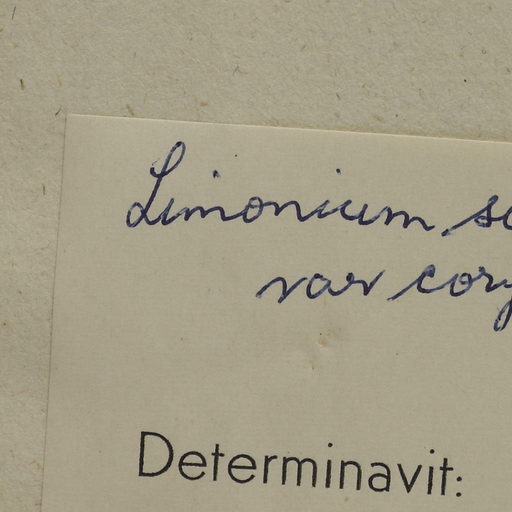 Limonium sc
var cory
Determinavit: